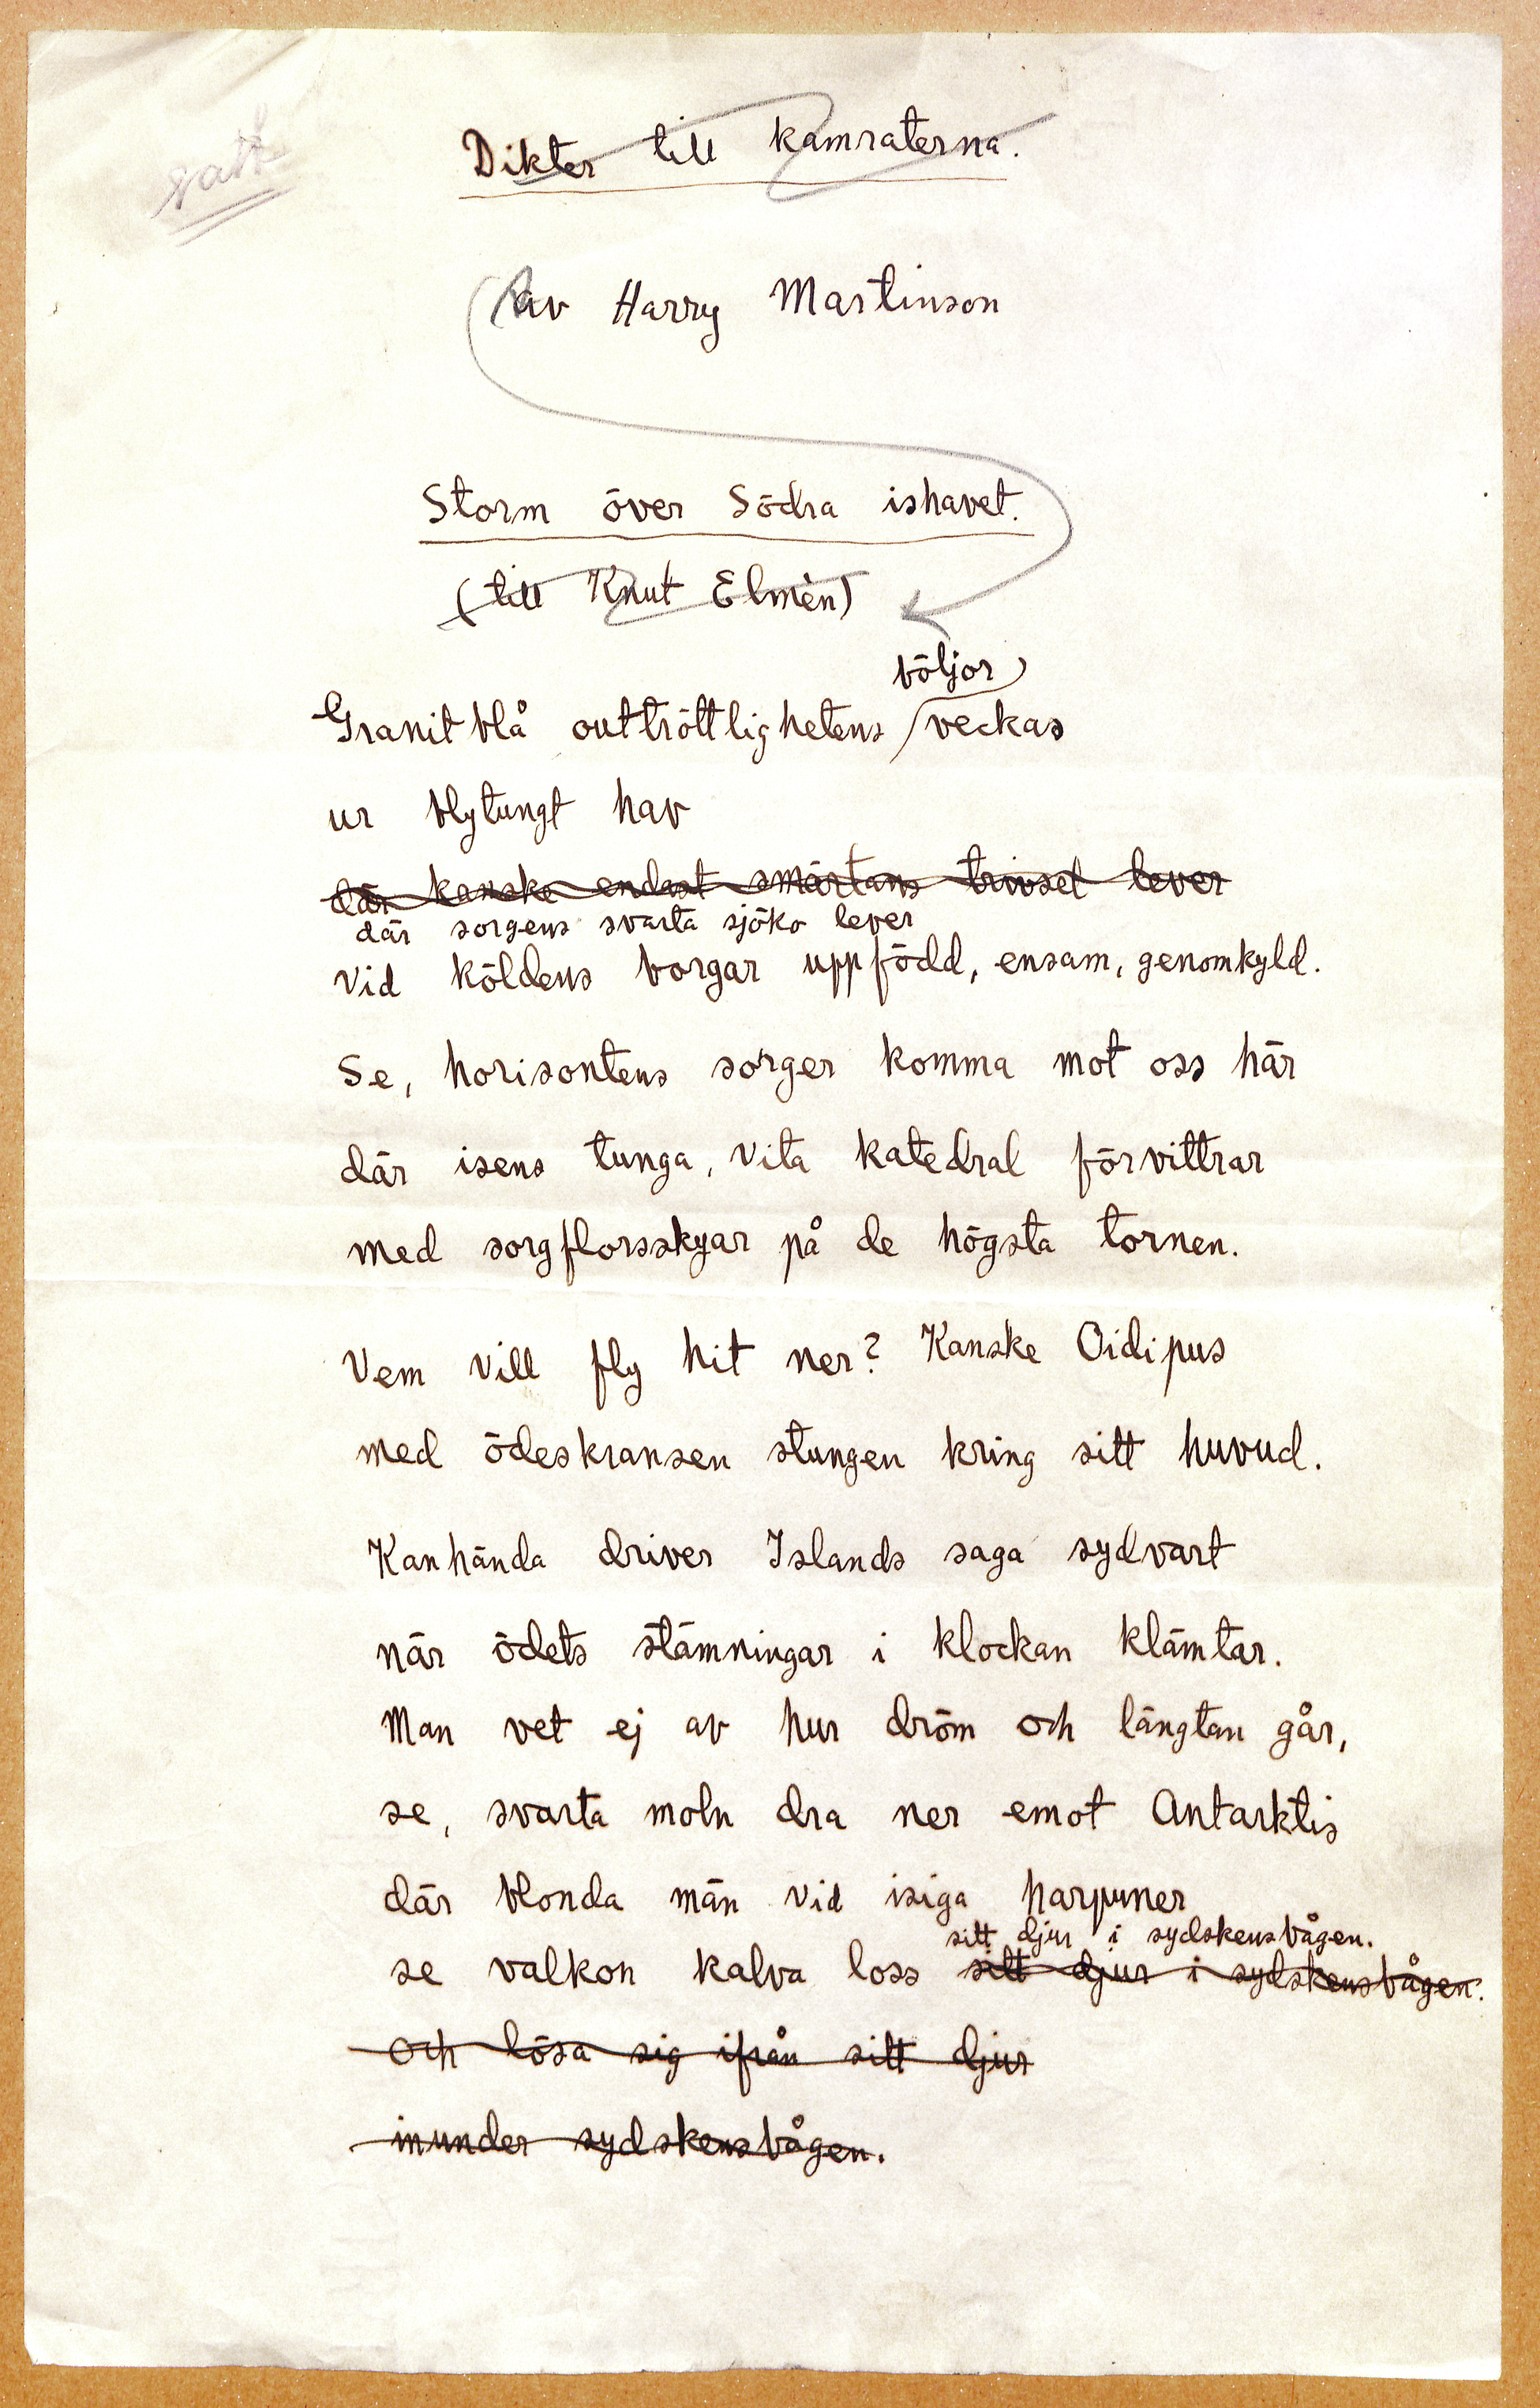 satt
Dikter till kamraterna.
Av Harry Martinson
Storm över Södra ishavet.
(till Knut Elmèn)
böljor
Granitblå outtröttlighetens veckas
ur blytungt hav
där kanske endast smärtans trivsel lever
där sorgens svarta sjöko lever
vid köldens borgar uppfödd, ensam, genomkyld.
Se, horisontens sorger komma mot oss här
där isens tunga, vita katedral förvittrar
med sorgflorsskyar på de högsta tornen.
Vem vill fly hit ner? Kanske Oidipus
med ödeskransen stungen kring sitt huvud.
Kanhända driver Islands saga sydvart
när ödets stämningar i klockan klämtar.
Man vet ej av hur dröm och längtan går,
se, svarta moln dra ner emot Antarktis
där blonda män vid isiga harpuner
sitt djur i sydskensbågen.
se valkon kalva loss sitt djur i sydskensbågen.
och lösa sig ifrån sitt djur
inunder sydskensbågen.